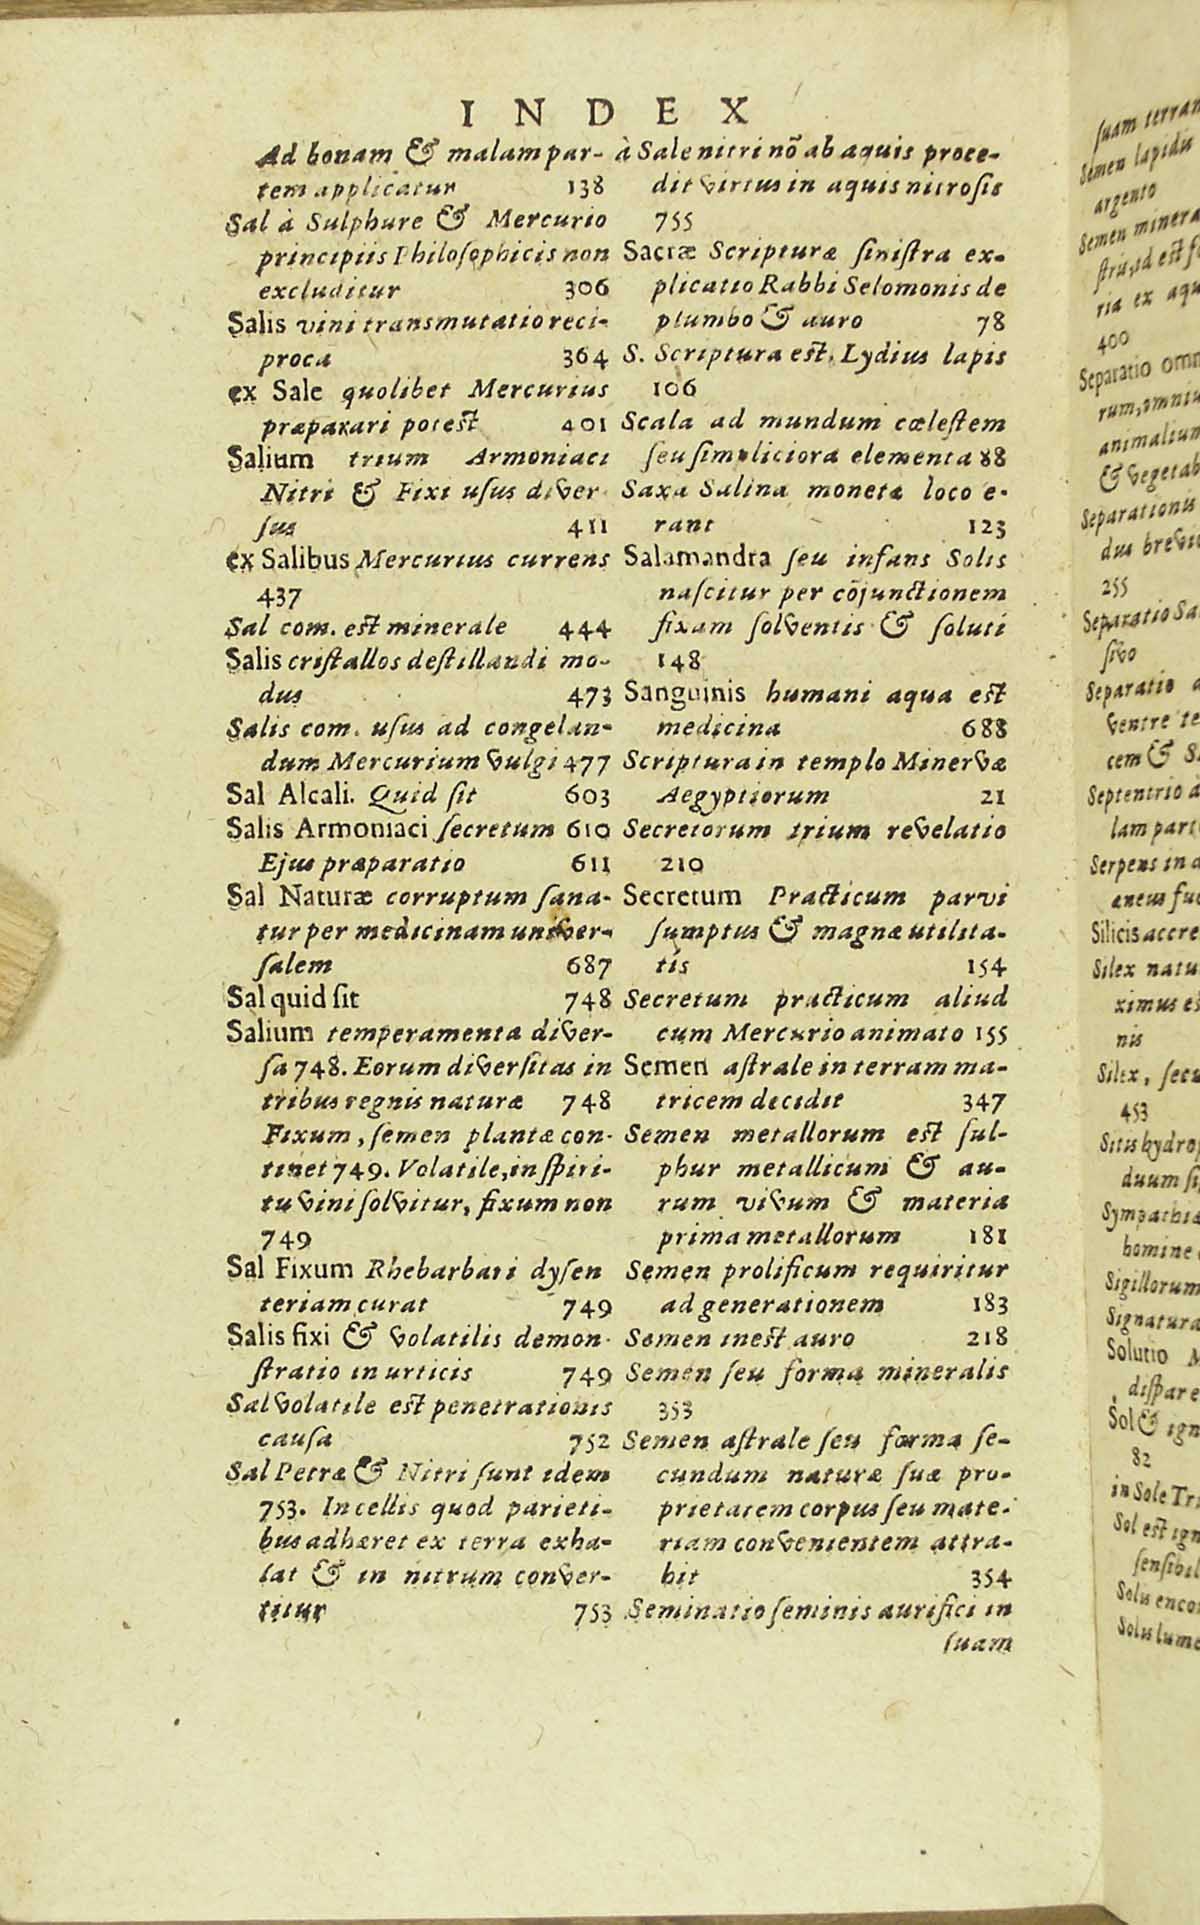 INDEX
Ad bonam & malam par-
tem applicatur 138
Sal à Sulphure & Mercurio
principiis Philosophicis non
excluditur 306
Salis vini transmutatio reci-
proca 364
ex Sale quolibet Mercurius
præparari potest 401
Salium trium Armoniaci
Nitri & Fixi usus diver-
sus 411
ex Salibus Mercurius currens
437
Sal com. est minerale 444
Salis cristallos destillandi mo-
dus 473
Salis com. usus ad congelan-
dum Mercurium vulgi 477
Sal Alcali. Quid sit 603
Salis Armoniaci secretum 610
Ejus præparatio 611
Sal Naturæ corruptum sana-
tur per medicinam univer-
salem 687
Sal quid sit 748
Salium temperamenta diver-
sa 748. Eorum diversitas in
tribus regnis naturæ 748
Fixum, semen plantæ con-
tinet 749. Volatile, in spiri-
tu vini solvitur, fixum non
749
Sal Fixum Rhebarbari dysen
teriam curat 749
Salis fixi & volatilis demon-
stratio in urticis 749
Sal volatile est penetrationis
causa 752
Sal Petræ & Nitri sunt idem
753. In cellis quod parieti-
bus adhæret ex terra exha-
lat & in nitrum conver-
titur 753
à Sale nitri nõ ab aquis proce-
dit virtus in aquis nitrosis
755
Sacræ Scripturæ sinistra ex-
plicatio Rabbi Selomonis de
plumbo & auro 78
S. Scriptura est Lydius lapis
106
Scala ad mundum cœlestem
seu simpliciora elementa 88
Saxa Salina monetæ loco e-
rant 123
Salamandra seu infans Solis
nascitur per cõjunctionem
fixam solventis & soluti
148
Sanguinis humani aqua est
medicina 688
Scriptura in templo Minervæ
Aegyptiorum 21
Secretorum trium revelatio
210
Secretum Practicum parvi
sumptus & magnæ utilita-
tis 154
Secretum practicum aliud
cum Mercurio animato 155
Semen astrale in terram ma-
tricem decidit 347
Semen metallorum est sul-
phur metallicum & au-
rum vivum & materia
prima metallorum 181
Semen prolificum requiritur
ad generationem 183
Semen inest auro 218
Semen seu forma mineralis
353
Semen astrale seu forma se-
cundum naturæ suæ pro-
prietatem corpus seu mate-
riam convenientem attra-
hit 354
Seminatio seminis aurifici in
suam
suam terram
Semen lapidu
argento
Semen minera
ria ex aqu
400
Separatio omn
rum, omniu
animalium
& vegetab
Separationis
dus brevi
255
Separatio Sa
sivo
Separatio a
ventre te
cem & S
Septentrio a
lam part
Serpens in a
aneus fu
Silicis accre
Silex natu
ximus es
nis
Silex, secu
453
Sitis hydrop
duum si
Sympathia
homine
Sigillorum
Signatura
Solutio M
dispare
Sol & ign
82
in Sole Tri
Sol est ign
sensibil
Solis enco
Solis lume